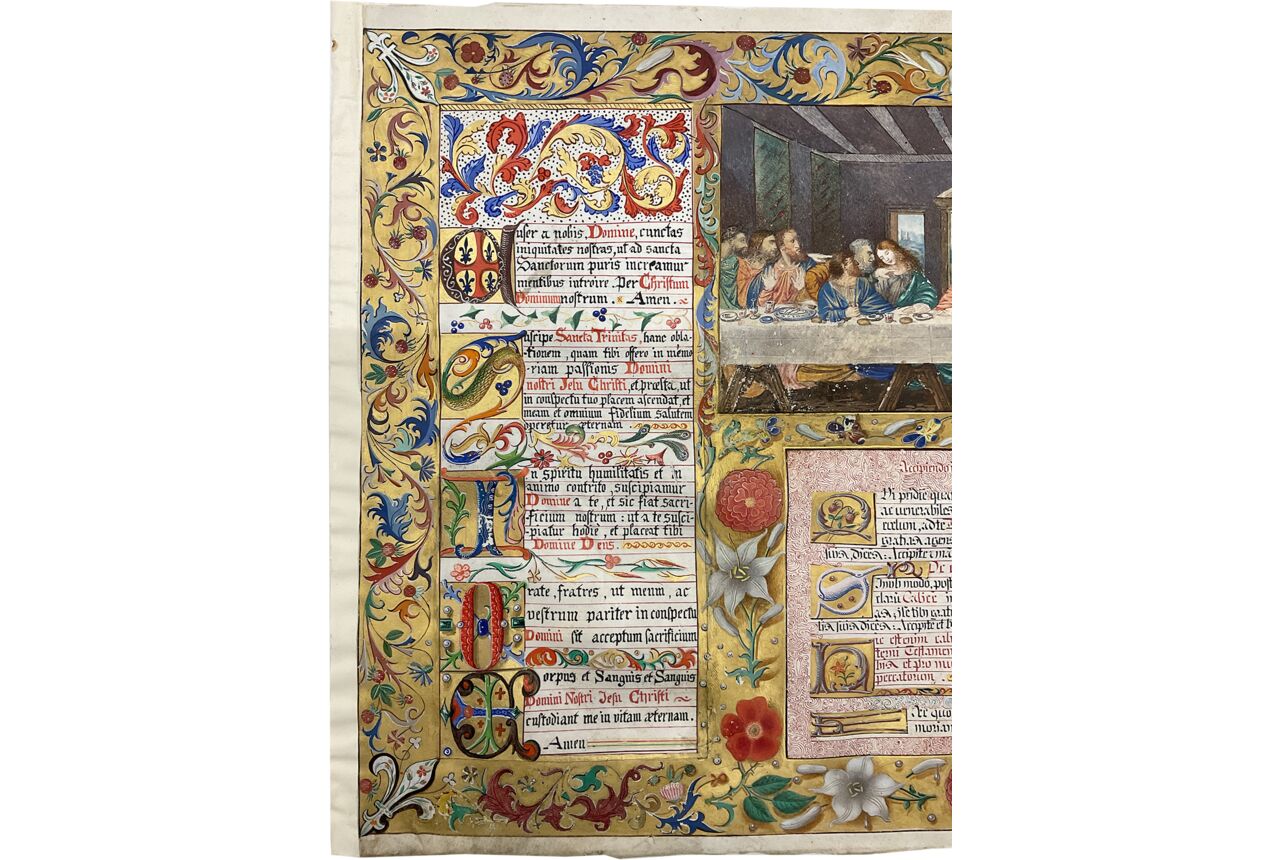 Aufer a nobis, Domine, cunctas
iniquitates nostras, ut ad sancta
Sanctorum puris mereamur
mentibus introire. Per Christum
Dominum nostrum. Amen.
Suscipe Sancta Trinitas, hanc obla-
-tionem, quam tibi offero in memo
-riam passionis Domini
nostri Jesu Christi, et præsta, ut
in conspectu tuo placem ascendat, et
meam et omnium fidelium salutem
operetur æternam.
In spiritu humilitatis et in
animo contrito, suscipiamur
Domine a te, et sic fiat sacri-
-ficium nostrum: ut a te susci-
-piatur hodie, et placeat tibi
Domine Deus.
Orate, fratres, ut meum, ac
vestrum pariter in conspectu
Domini sit acceptum sacrificium
Corpus et Sanguis et Sanguis
Domini Nostri Jesu Christi
custodiant me in vitam æternam.
Amen
Accipiendo
Qui pridie qua
ac venerabiles
cœlum, ad te
gratias agens
Simili modo, post
Calice
Hic est enim cali
terni Testamen
et pro mu
peccatorum.
Hæc quo